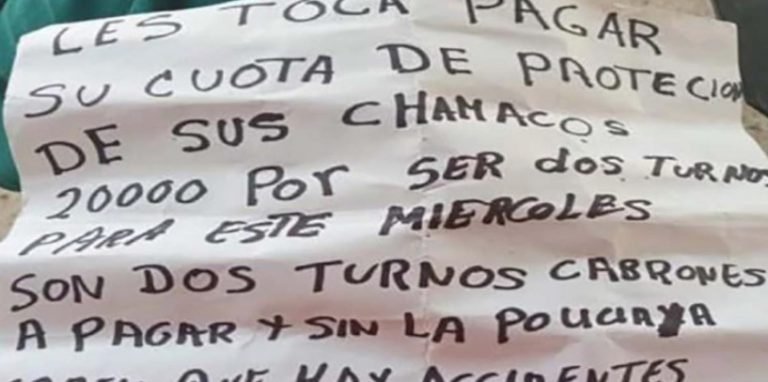 LES TOCA PAGAR
SU CUOTA DE PROTECION
DE SUS CHAMACOS
20000 POR SER dos TURNOS
PARA ESTE MIERCOLES
SON DOS TURNOS CABRONES
A PAGAR Y SIN LA
QUE HAY ACCIDENTES